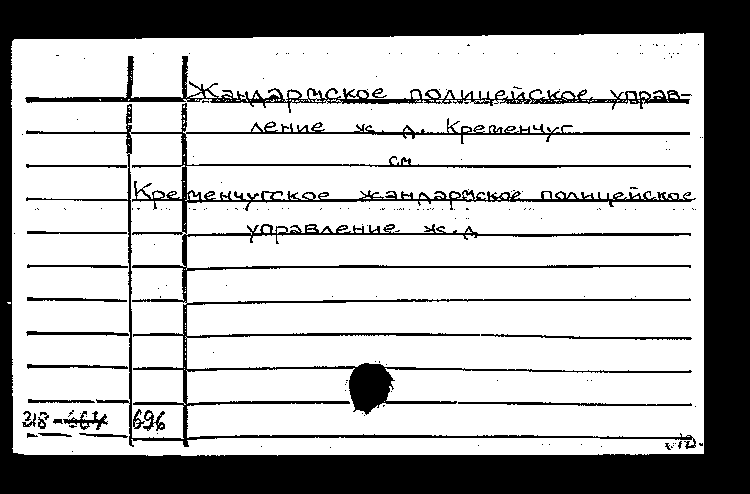 Жандармское полицейское управ-
ление ж. д. Кременчуг
см
Кременчугское жандармское полицейское
управление ж.д
318- 696